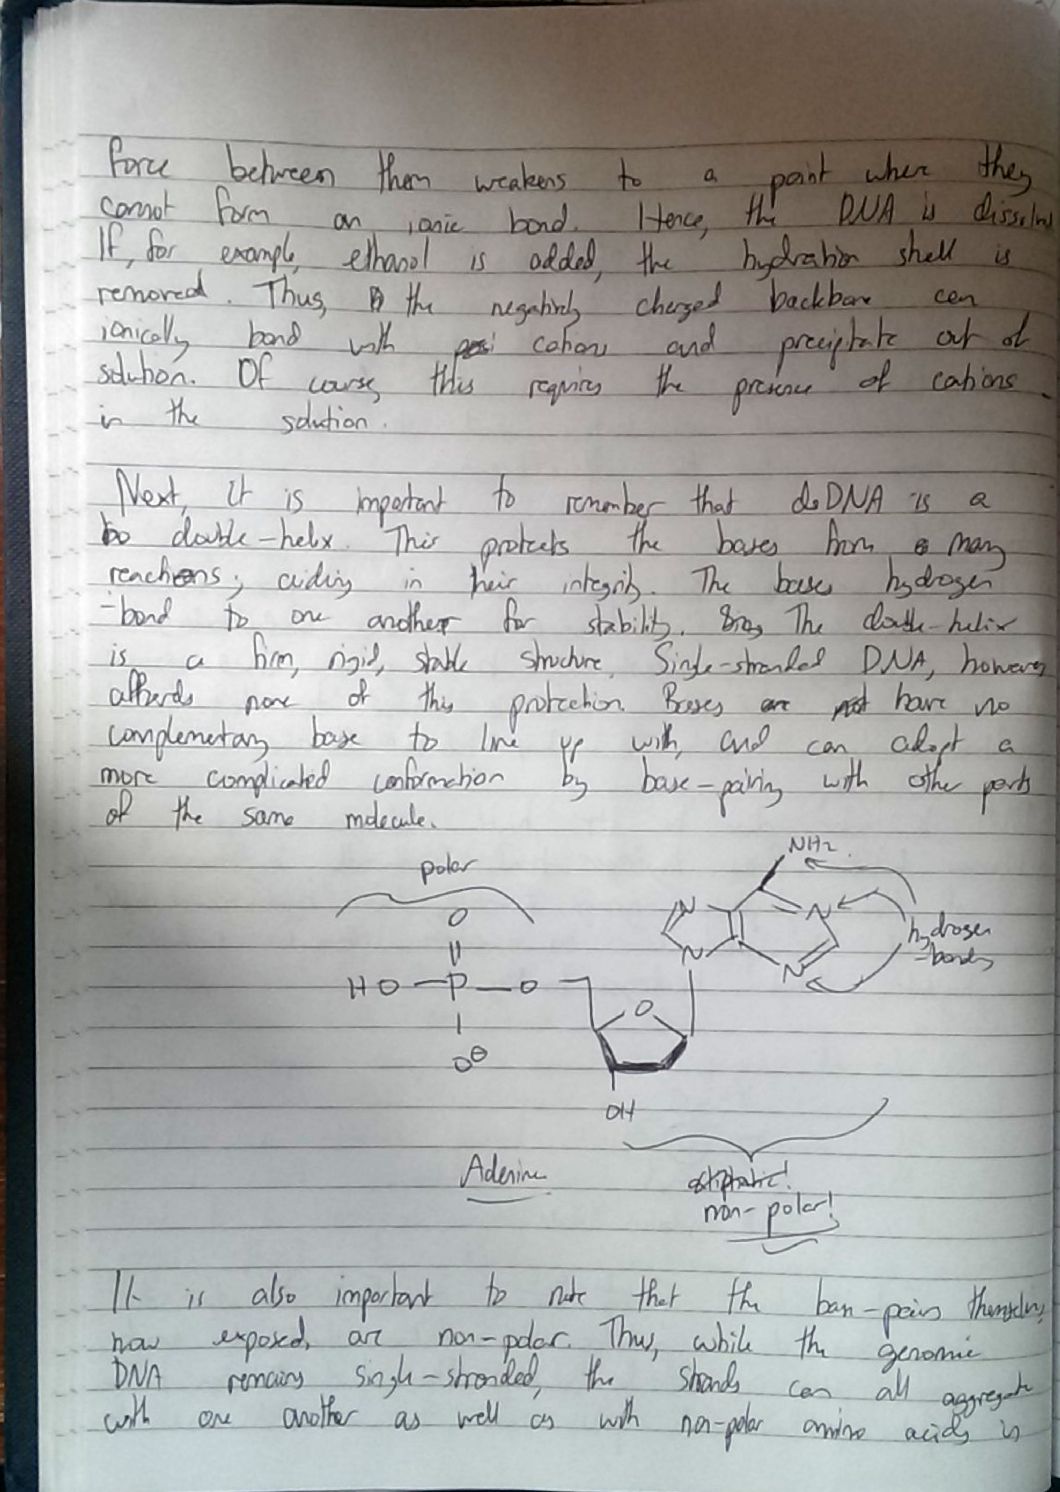 force between them weakens to a point where they
cannot form an ionic bond. Hence, the DNA is dissolved
If, for example, ethanol is added, the hydration shell is
removed. Thus, the negatively charged backbone can
ionically bond with cations and precipitate out of
solution. Of course, this requires the presence of cations
in the solution.
Next, it is important to remember that dsDNA is a
double-helix. This protects the bases from many
reactions, aiding in their integrity. The bases hydrogen
-bond to one another for stability. The double-helix
is a firm, rigid, stable structure. Single-stranded DNA, however
affords none of this protection. Bases have no
complementary base to line up with, and can adopt a
more complicated conformation by base-pairing with other parts
of the same molecule.
NH2
polar
O
N
N
hydrogen
-bonds
N
N
HO-P-O
O
O⊖
OH
Adenine
aliphatic!
non-polar!
It is also important to note that the base-pairs themselves,
now exposed, are non-polar. Thus, while the genomic
DNA remains single-stranded, the strands can all aggregate
with one another as well as with non-polar amino acids in